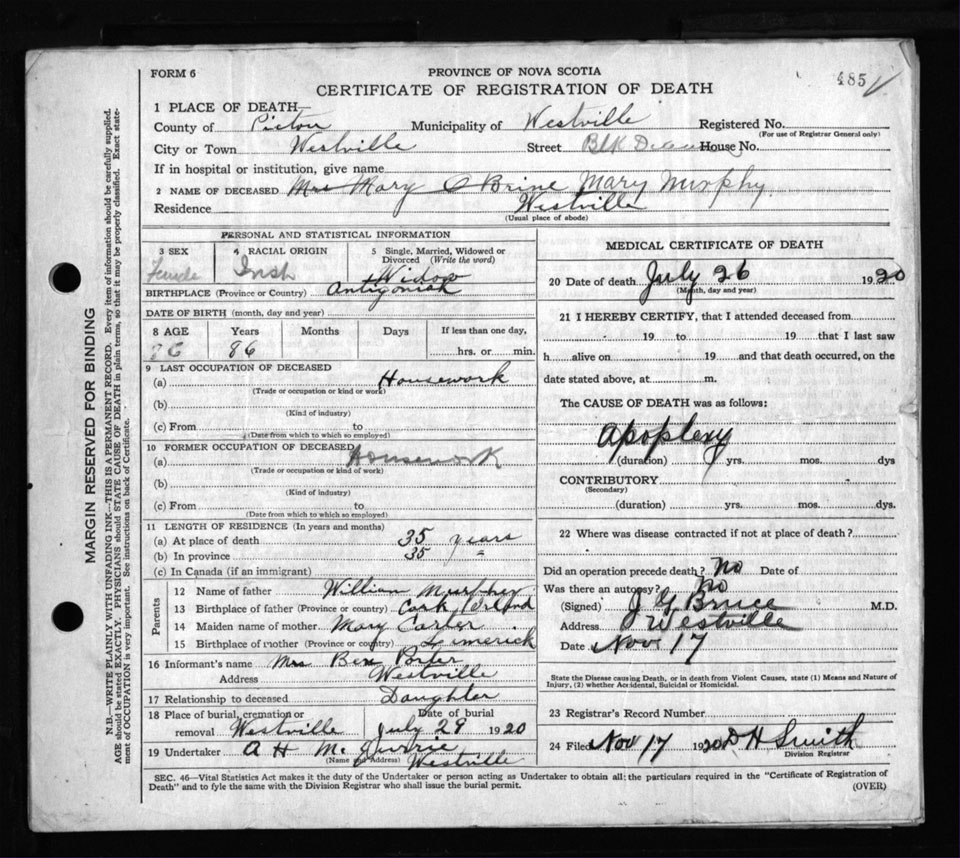 FORM 6
PROVINCE OF NOVA SCOTIA
485
CERTIFICATE OF REGISTRATION OF DEATH
1 PLACE OF DEATH—
County of Pictou Municipality of Westville Registered No.
(For use of Registrar General only)
City or Town Westville Street Blk House No.
If in hospital or institution, give name
2 NAME OF DECEASED Mrs Mary O Brine Mary Murphy
Residence Westville
(Usual place of abode)
PERSONAL AND STATISTICAL INFORMATION
3 SEX Female
4 RACIAL ORIGIN Irish
5 Single, Married, Widowed or Divorced (Write the word) Widow
BIRTHPLACE (Province or Country) Antigonish
DATE OF BIRTH (month, day and year)
8 AGE Years Months Days If less than one day,
86 hrs. or min.
9 LAST OCCUPATION OF DECEASED
(a) Housework
(Trade or occupation or kind or work)
(b)
(Kind of industry)
(c) From to
(Date from which to which so employed)
10 FORMER OCCUPATION OF DECEASED
(a) Housework
(Trade or occupation or kind of work)
(b)
(Kind of industry)
(c) From to
(Date from which to which so employed)
11 LENGTH OF RESIDENCE (In years and months)
(a) At place of death 35 years
(b) In province 35 "
(c) In Canada (if an immigrant)
Parents
12 Name of father William Murphy
13 Birthplace of father (Province or country) Cork Irland
14 Maiden name of mother Mary Carter
15 Birthplace of mother (Province or country) Limerick
16 Informant's name Mrs Ben
Address Westville
17 Relationship to deceased Daughter
18 Place of burial, cremation or removal Westville
Date of burial July 29 1920
19 Undertaker A H Mc
(Name and Address) Westville
MEDICAL CERTIFICATE OF DEATH
20 Date of death July 26 1920
(Month, day and year)
21 I HEREBY CERTIFY, that I attended deceased from
19 to 19 that I last saw
h alive on 19 and that death occurred, on the
date stated above, at m.
The CAUSE OF DEATH was as follows:
Apoplexy
(duration) yrs. mos. dys
CONTRIBUTORY
(Secondary)
(duration) yrs. mos. dys.
22 Where was disease contracted if not at place of death?
Did an operation precede death? No Date of
Was there an autopsy? No
(Signed) J G Bruce M.D.
Address Westville
Date Nov 17
State the Disease causing Death, or in death from Violent Causes, state (1) Means and Nature of
Injury, (2) whether Accidental, Suicidal or Homicidal.
23 Registrar's Record Number
24 Filed Nov 17 1920 D H Smith
Division Registrar
SEC. 46—Vital Statistics Act makes it the duty of the Undertaker or person acting as Undertaker to obtain all the particulars required in the "Certificate of Registration of
Death" and to fyle the same with the Division Registrar who shall issue the burial permit.
(OVER)
MARGIN RESERVED FOR BINDING
N.B.—WRITE PLAINLY WITH UNFADING INK—THIS IS A PERMANENT RECORD. Every item of information should be carefully supplied.
AGE should be stated EXACTLY. PHYSICIANS should STATE CAUSE OF DEATH in plain terms, so that it may be properly classified. Exact statement
of OCCUPATION is very important. See instructions on back of Certificate.